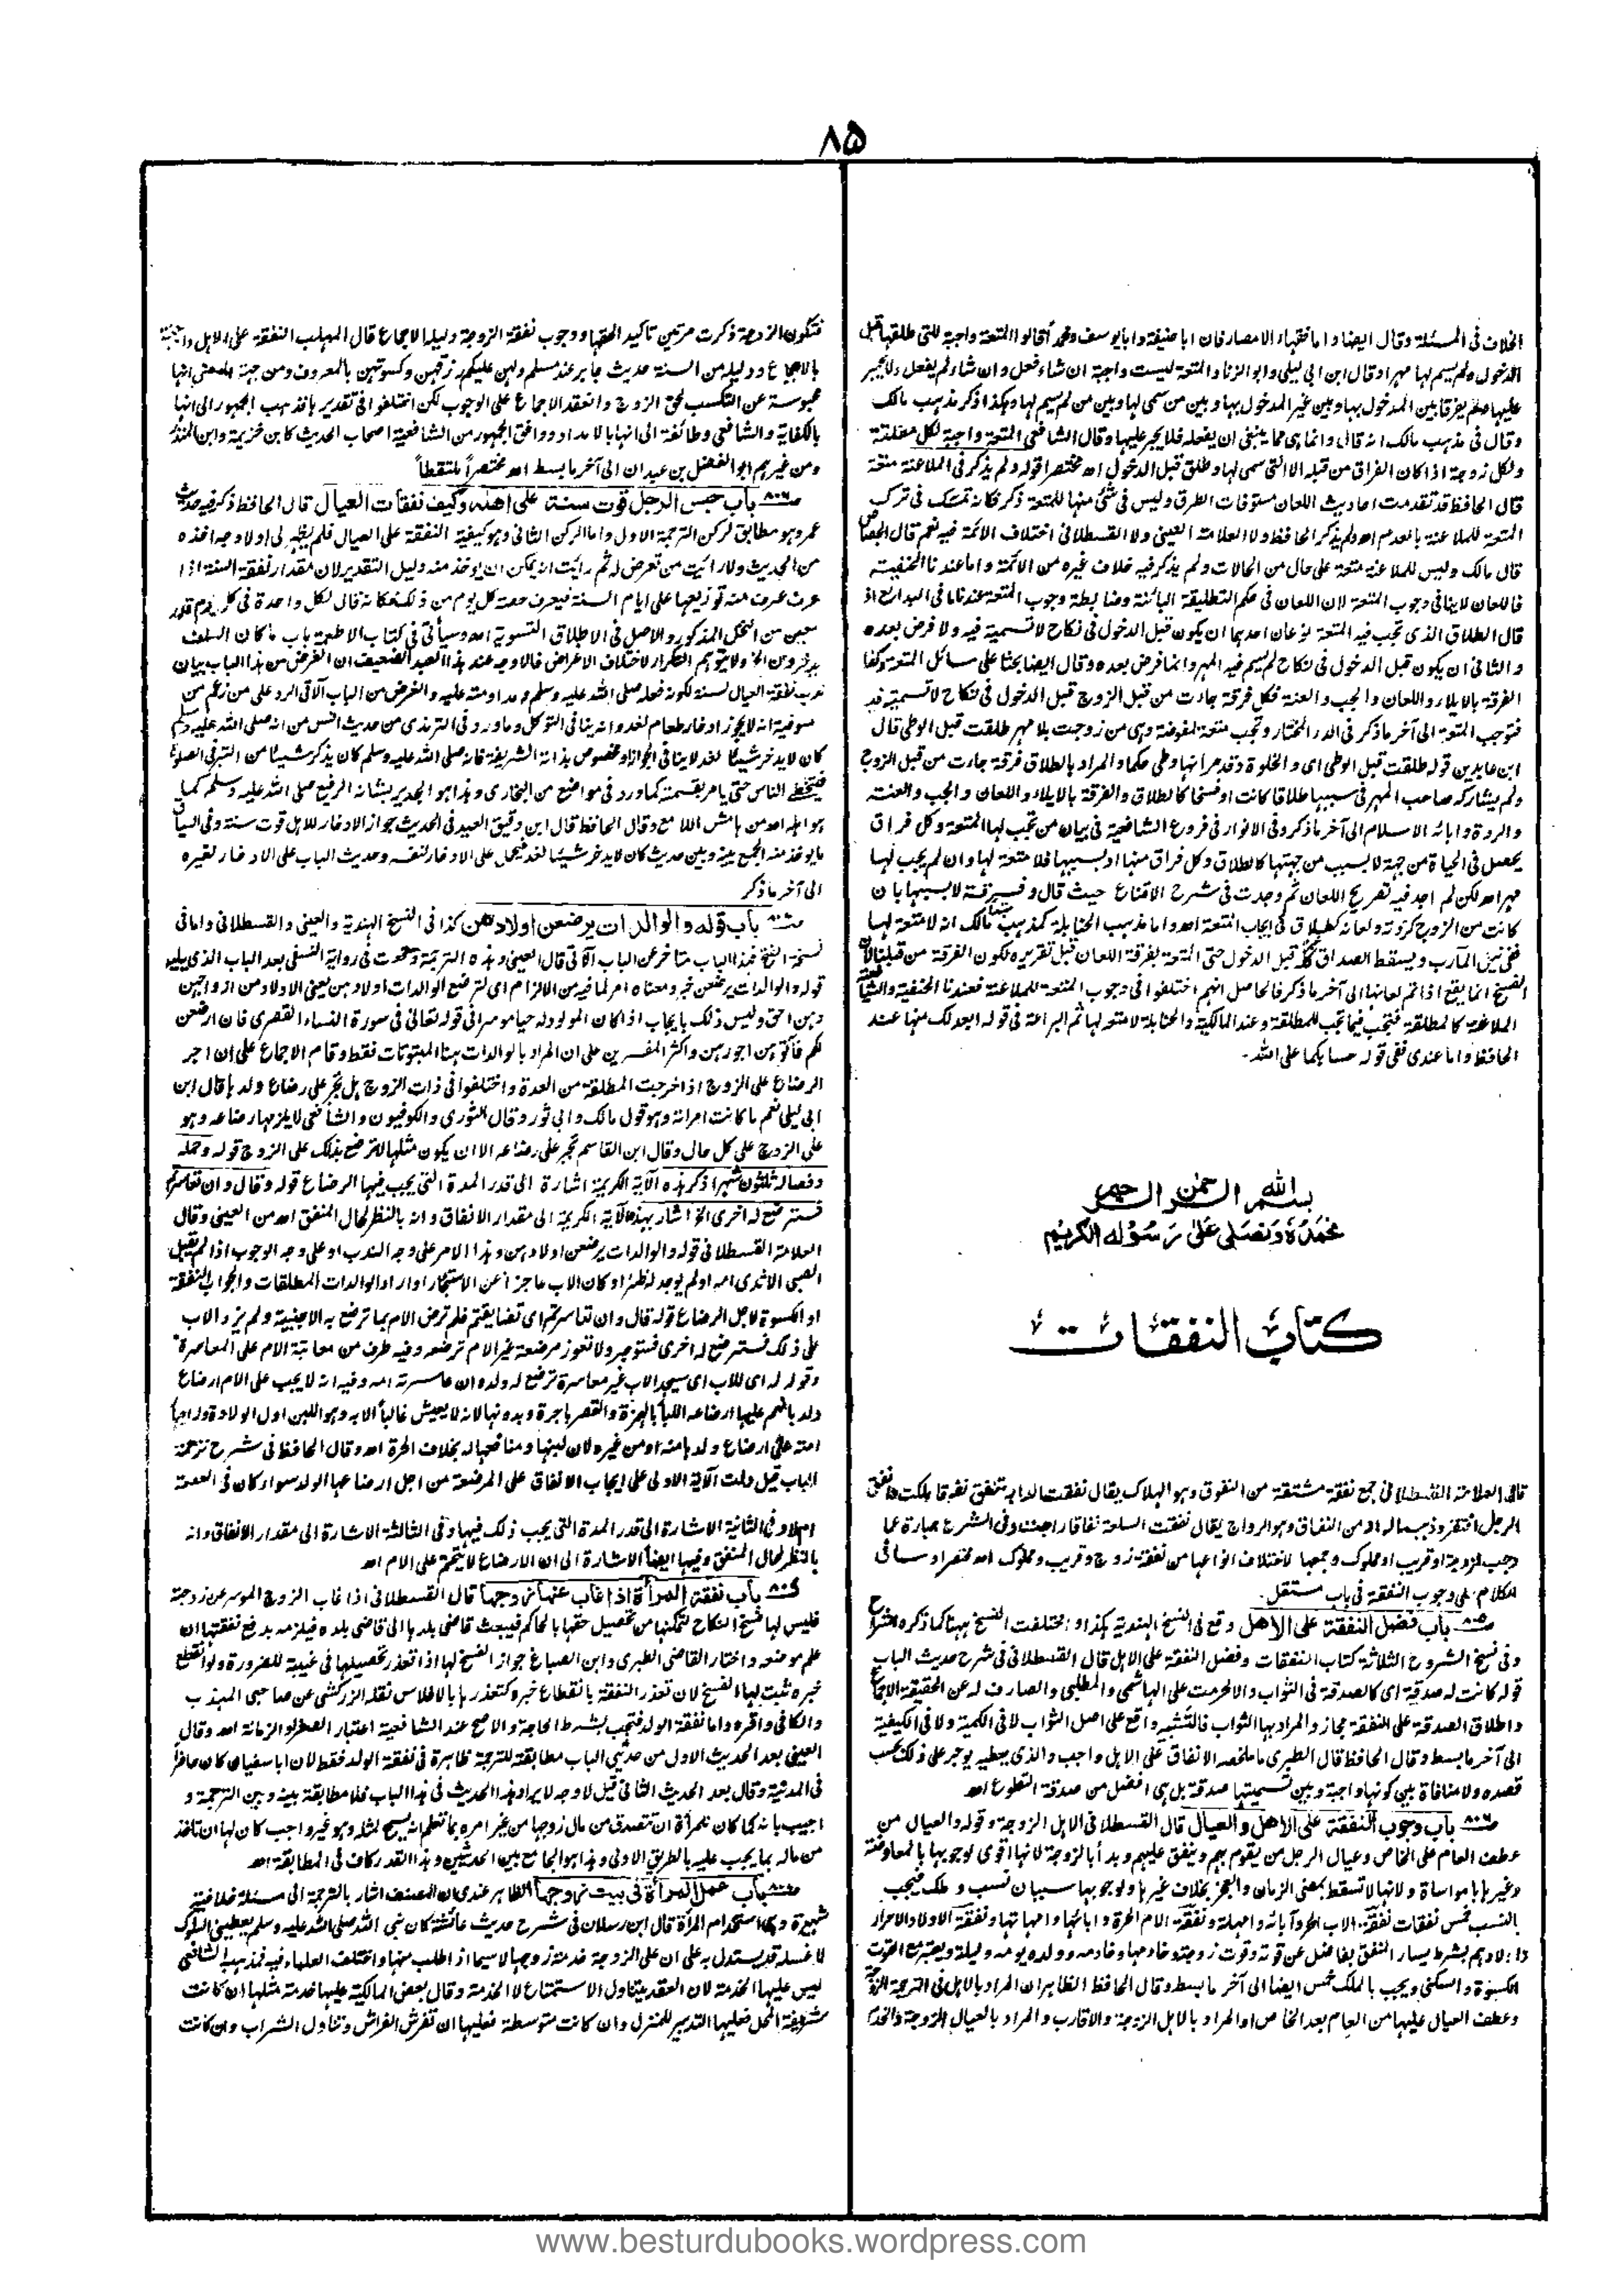 ٨٥
الخلاف فى المسئلة وقال ايضا واما فقهاء الامصار فان ابا حنيفة وابا يوسف ومحمدا قالوا المتعة واجبة للتى طلقها قبل
الدخول ولم يسم لها مهرا وقال ابن ابى ليلى وابو الزناد المتعة ليست واجبة ان شاء فعل وان شاء لم يفعل ولا يجبر
عليها ولم يفرقا بين المدخول بها وبين غير المدخول بها وبين من سمى لها وبين من لم يسم لها وهكذا ذكر مذهب مالك
وقال فى مذهب مالك انه قال وانما هى مما ينبغى ان يفعله فلا يجبر عليها وقال الشافعى المتعة واجبة لكل مطلقة
ولكل زوجة اذا كان الفراق من قبله الا التى سمى لها وطلق قبل الدخول اه مختصرا قوله ولم يذكر فى الملاعنة متعة
قال الحافظ قد تقدمت احاديث اللعان مستوفات الطرق وليس فى شئ منها للمتعة ذكر فكانه تمسك فى ترك
المتعة للملاعنة بالعدم اه ولم يذكر الحافظ ولا العلامة العينى ولا القسطلانى اختلاف الائمة فيه نعم قال الجصاص
قال مالك وليس للملاعنة متعة على حال من الحالات ولم يذكر فيه خلاف غيره من الائمة واما عندنا الحنفية
فاللعان لا ينافى وجوب المتعة لان اللعان فى حكم التطليقة البائنة وضابطة وجوب المتعة عندنا ما فى البدائع اذ
قال الطلاق الذى تجب فيه المتعة نوعان احدهما ان يكون قبل الدخول فى نكاح لا تسمية فيه ولا فرض بعده
والثانى ان يكون قبل الدخول فى نكاح لم يسم فيه المهر وانما فرض بعده وقال ايضا بحثا على مسائل المتعة وكذا
الفرقة بالايلاء واللعان والجب والعنة فكل فرقة جاءت من قبل الزوج قبل الدخول فى نكاح لا تسمية فيه
فتوجب المتعة الى آخر ما ذكر فى الدر المختار وتجب متعة لمفوضة وهى من زوجت بلا مهر طلقت قبل الوطى قال
ابن عابدين قوله طلقت قبل الوطى اى والخلوة وقد مر انها وطى حكما والمراد بالطلاق فرقة جاءت من قبل الزوج
ولم يشاركه صاحب المهر فى سببها طلاقا كانت او فسخا كالطلاق والفرقة بالايلاء واللعان والجب والعنة
والردة وابائه الاسلام الى آخر ما ذكر وفى الانوار فى فروع الشافعية فى بيان من تجب لها المتعة وكل فراق
يحصل فى الحياة من جهة لا بسبب من جهتها كالطلاق وكل فراق منها او بسببها فلا متعة لها وان لم يجب لها
مهر اه لكن لم اجد فيه تصريح اللعان ثم وجدت فى شرح الاقناع حيث قال وفرقة لا بسببها بان
كانت من الزوج كردته ولعانه كطلاق فى ايجاب المتعة اه واما مذهب الحنابلة كمذهب مالك انه لا متعة لها
ففى نيل المآرب ويسقط الصداق كله قبل الدخول حتى المتعة بفرقة اللعان قبل تقريره لكون الفرقة من قبلها لان
الفسخ انما يقع اذا تم لعانها الى آخر ما ذكر فالحاصل انهم اختلفوا فى وجوب المتعة للملاعنة فعندنا الحنفية والشافعية
الملاعنة كالمطلقة فتجب فيما تجب للمطلقة وعند المالكية والحنابلة لا متعة لها ثم البراعة فى قوله ابعد لك منها عند
الحافظ واما عندى ففى قوله حسابكما على الله۔
بسم الله الرحمن الرحيم
نحمده ونصلى على رسوله الكريم
كتاب النفقات
قال العلامة القسطلانى جمع نفقة مشتقة من النفوق وهو الهلاك يقال نفقت الدابة تنفق نفوقا هلكت وانفق
الرجل افتقر وذهب ماله او من النفاق وهو الرواج يقال نفقت السلعة نفاقا راجت وفى الشرع عبارة عما
وجب لزوجة او قريب او مملوك وجمعها لاختلاف انواعها من نفقة زوج وقريب ومملوك اه مختصرا وسياتى
الكلام على وجوب النفقة فى باب مستقل۔
باب فضل النفقة على الاهل وقع فى النسخ الهندية هكذا واختلفت النسخ ههنا كما ذكره الشراح
وفى نسخ الشروح الثلاثة كتاب النفقات وفضل النفقة على الاهل قال القسطلانى فى شرح حديث الباب
قوله كانت له صدقة اى كالصدقة فى الثواب والا لحرمت على الهاشمى والمطلبى والصارف له عن الحقيقة الاجماع
واطلاق الصدقة على النفقة مجاز والمراد بها الثواب فالتشبيه واقع على اصل الثواب لا فى الكمية ولا فى الكيفية
الى آخر ما بسط وقال الحافظ قال الطبرى ما ملخصه الانفاق على الاهل واجب والذى يعطيه يوجر على ذلك بحسب
قصده ولا منافاة بين كونها واجبة وبين تسميتها صدقة بل هى افضل من صدقة التطوع اه
باب وجوب النفقة على الاهل والعيال قال القسطلانى الاهل الزوجة وقوله والعيال من
عطف العام على الخاص وعيال الرجل من يقوم بهم وينفق عليهم وبدأ بالزوجة لانها اقوى لوجوبها بالمعاوضة
وغيرها بالمواساة ولانها لا تسقط بمضى الزمان والعجز بخلاف غيرها ولوجوبها سببان نسب وملك فيجب
بالنسب خمس نفقات نفقة الاب الحر وآبائه وامهاته ونفقة الام الحرة وابائها وامهاتها ونفقة الاولاد الاحرار
واولادهم بشرط يسار المنفق بفاضل عن قوته وقوت زوجته وخادمها وخادمه وولده يومه وليلته ويعتبر مع القوت
الكسوة والسكنى ويجب بالملك خمس ايضا الى آخر ما بسط وقال الحافظ الظاهر ان المراد بالاهل فى الترجمة الزوجة
وعطف العيال عليها من العام بعد الخاص او المراد بالاهل الزوجة والاقارب والمراد بالعيال الزوجة والخدم
فتكون الزوجة ذكرت مرتين تاكيدا لحقها ووجوب نفقة الزوجة دليله الاجماع قال المهلب النفقة على الاهل واجبة
بالاجماع ودليله من السنة حديث جابر عند مسلم ولهن عليكم رزقهن وكسوتهن بالمعروف ومن جهة المعنى انها
محبوسة عن التكسب لحق الزوج وانعقد الاجماع على الوجوب لكن اختلفوا فى تقديرها فذهب الجمهور الى انها
بالكفاية والشافعى وطائفة الى انها بالامداد ووافق الجمهور من الشافعية اصحاب الحديث كابن خزيمة وابن المنذر
ومن غيرهم ابو الفضل بن عبدان الى آخر ما بسط اه مختصراً ملتقطاً
باب حبس الرجل قوت سنة على اهله وكيف نفقات العيال قال الحافظ ذكر فيه حديث
عمر وهو مطابق لركن الترجمة الاول واما الركن الثانى وهو كيفية النفقة على العيال فلم يظهر لى اولا وجه اخذه
من الحديث ولا رأيت من تعرض له ثم رأيت انه يمكن ان يوخذ منه دليل التقدير لان مقدار نفقة السنة اذا
عرف عرف منه توزيعها على ايام السنة فيعرف حصة كل يوم من ذلك فكانه قال لكل واحدة فى كل يوم قدر
معين من النخل المذكور والاصل فى الاطلاق التسوية اه وسيأتى فى كتاب الاطعمة باب ما كان السلف
يدخرون الخ ولا يتوهم التكرار لاختلاف الاغراض فالاوجه عند هذا العبد الضعيف ان الغرض من هذا الباب بيان
ندب نفقة العيال لسنة لكونه فعله صلى الله عليه وسلم ومداومته عليه والغرض من الباب الآتى الرد على من زعم من
صوفية انه لا يجوز ادخار طعام لغد وانه ينافى التوكل وما ورد فى الترمذى من حديث انس من انه صلى الله عليه وسلم
كان لا يدخر شيئا لغد لا ينافى الجواز او مخصوص بذاته الشريفة فانه صلى الله عليه وسلم كان يذكر شيئا من التبر فى الصلوة
فيتخطى الناس حتى يامر بقسمته كما ورد فى مواضع من البخارى وهذا هو الجدير بشانه الرفيع صلى الله عليه وسلم كما
هو اهله اه من هامش اللامع وقال الحافظ قال ابن دقيق العيد فى الحديث جواز الادخار للاهل قوت سنة وفى السياق
ما يوخذ منه الجمع بينه وبين حديث كان لا يدخر شيئا لغد فيحمل على الادخار لنفسه وحديث الباب على الادخار لغيره
الى آخر ما ذكر
باب قوله والوالدات يرضعن اولادهن كذا فى النسخ الهندية والعينى والقسطلانى واما فى
نسخة الفتح فهذا الباب متاخر عن الباب الآتى قال العينى وهذه الترجمة وقعت فى رواية النسفى بعد الباب الذى يليه
قوله والوالدات يرضعن خبر ومعناه امر لما فيه من الالزام اى لترضع الوالدات اولادهن يعنى الاولاد من ازواجهن
وهن احق وليس ذلك بايجاب اذا كان المولود له حيا موسرا فى قوله تعالى فى سورة النساء القصرى فان ارضعن
لكم فآتوهن اجورهن واكثر المفسرين على ان المراد بالوالدات هنا المبتوتات فقط وقام الاجماع على ان اجر
الرضاع على الزوج اذا خرجت المطلقة من العدة واختلفوا فى ذات الزوج هل تجبر على رضاع ولدها قال ابن
ابى ليلى نعم ما كانت امرأته وهو قول مالك وابى ثور وقال الثورى والكوفيون والشافعى لا يلزمها رضاعه وهو
على الزوج على كل حال وقال ابن القاسم تجبر على رضاعه الا ان يكون مثلها لا ترضع فذلك على الزوج قوله وحمله
وفصاله ثلثون شهرا ذكر هذه الآية الكريمة اشارة الى قدر المدة التى يجب فيها الرضاع قوله وقال وان تعاسرتم
فسترضع له اخرى الخ اشار بهذه الآية الكريمة الى مقدار الانفاق وانه بالنظر لحال المنفق اه من العينى وقال
العلامة القسطلانى قوله والوالدات يرضعن اولادهن وهذا الامر على وجه الندب او على وجه الوجوب اذا لم يقبل
الصبى الا ثدى امه او لم يوجد له ظئر او كان الاب عاجزا عن الاستئجار او اراد الوالدات المطلقات وايجاب النفقة
او الكسوة لاجل الرضاع قوله قال وان تعاسرتم اى تضايقتم فلم ترض الام بما ترضع به الاجنبية ولم يزد الاب
على ذلك فسترضع له اخرى فستوجد ولا تعوز مرضعة غير الام ترضعه وفيه طرف من معاتبة الام على المعاسرة
وقوله له اى للاب اى سيجد الاب غير معاسرة ترضع له ولده ان عاسرته امه وفيه انه لا يجب على الام ارضاع
ولدها نعم عليها ارضاعه اللبأ بالهمزة والقصر باجرة وبدونها لانه لا يعيش غالبا الا به وهو اللبن اول الولادة وله اجبار
امته على ارضاع ولدها منه او من غيره لان لبنها ومنافعها له بخلاف الحرة اه وقال الحافظ فى شرح ترجمة
الباب قيل دلت الآية الاولى على ايجاب الانفاق على المرضعة من اجل ارضاعها الولد سواء كان فى العصمة
ام لا وفى الثانية الاشارة الى قدر المدة التى يجب ذلك فيها وفى الثالثة الاشارة الى مقدار الانفاق وانه
بالنظر لحال المنفق وفيها ايضاً الاشارة الى ان الارضاع لا يتحتم على الام اه
باب نفقة المرأة اذا غاب عنها زوجها قال القسطلانى اذا غاب الزوج الموسر عن زوجته
فليس لها فسخ النكاح لتمكنها من تحصيل حقها بالحاكم فيبعث قاضى بلدها الى قاضى بلده فيلزمه بدفع نفقتها ان
علم موضعه واختار القاضى الطبرى وابن الصباغ جواز الفسخ لها اذا تعذر تحصيلها فى غيبته للضرورة ولو انقطع
خبره ثبت لها الفسخ لان تعذر النفقة بانقطاع خبره كتعذرها بالافلاس نقله الزركشى عن صاحبى المهذب
والكافى واقره واما نفقة الولد فتجب بشرط الحاجة والاصح عند الشافعية اعتبار الصغر او الزمانة اه وقال
العينى بعد الحديث الاول من حديثى الباب مطابقته للترجمة ظاهرة فى نفقة الولد فقط لان ابا سفيان كان حاضراً
فى المدينة وقال بعد الحديث الثانى قيل لا وجه لايراد هذا الحديث فى هذا الباب فلا مطابقة بينه وبين الترجمة و
اجيب بانه كما كان للمرأة ان تتصدق من مال زوجها من غير امره بما تعلم انه يسمح لمثله وهو غير واجب كان لها ان تاخذ
من ماله بما يجب عليه بالطريق الاولى وهذا هو الجامع بين الحديثين وهذا القدر كاف فى المطابقة اه
باب عمل المرأة فى بيت زوجها الظاهر عندى ان المصنف اشار بالترجمة الى مسئلة خلافية
شهيرة وهى استخدام المرأة قال ابن رسلان فى شرح حديث عائشة كان نبى الله صلى الله عليه وسلم يعطينى السواك
لاغسله قد يستدل به على ان على الزوجة خدمة زوجها لا سيما اذا طلب منها واختلف العلماء فيه فمذهب الشافعى
ليس عليها الخدمة لان العقد يتناول الاستمتاع لا الخدمة وقال بعض المالكية عليها خدمة مثلها ان كانت
شريفة المحل فعليها التدبير للمنزل وان كانت متوسطة فعليها ان تفرش الفراش وتناول الشراب وان كانت
www.besturdubooks.wordpress.com